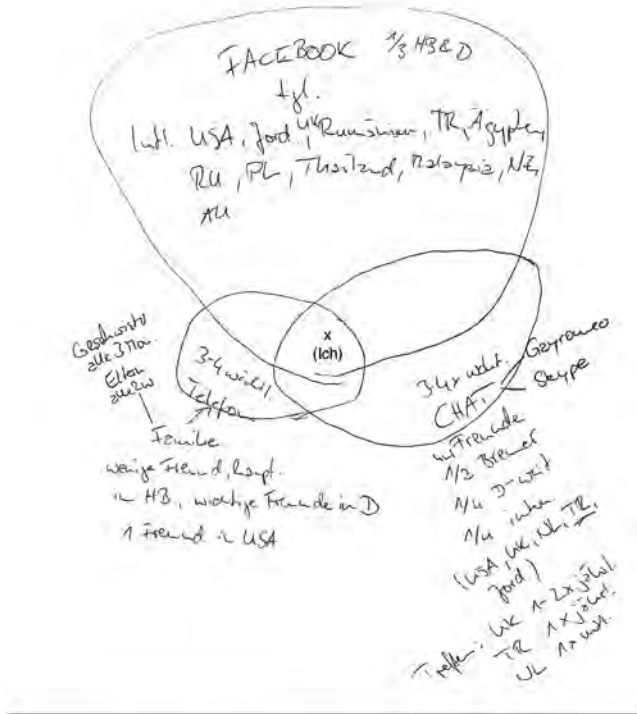 FACEBOOK 1/3 HB & D
tgl.
Intl. USA, Jord, UK, Rumänien, TR, Ägypten,
RU, PL, Thailand, Malaysia, NZ,
AU
x
(Ich)
Geschwister
alle 3 Mon.
Eltern
alle 2 W
3-4 wöchtl.
Telefon
Familie
wenige Freund, haupt.
in HB, wichtige Freunde in D
1 Freund in USA
3-4x wöcht.
CHAT
Gayromeo
Skype
Freunde
1/2 Bremer
1/4 D-weit
1/4 intern.
(USA, UK, NL, TR,
Jord)
Treffen: UK 1-2x jährl.
TR 1x jährl.
NL 1x